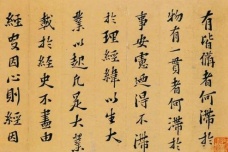 有皆備者何滯於
物有一貫者何滯於
事安得不滯
於理經緯以生大
業以起凡是大業
載於經史不盡由
經因心則經因